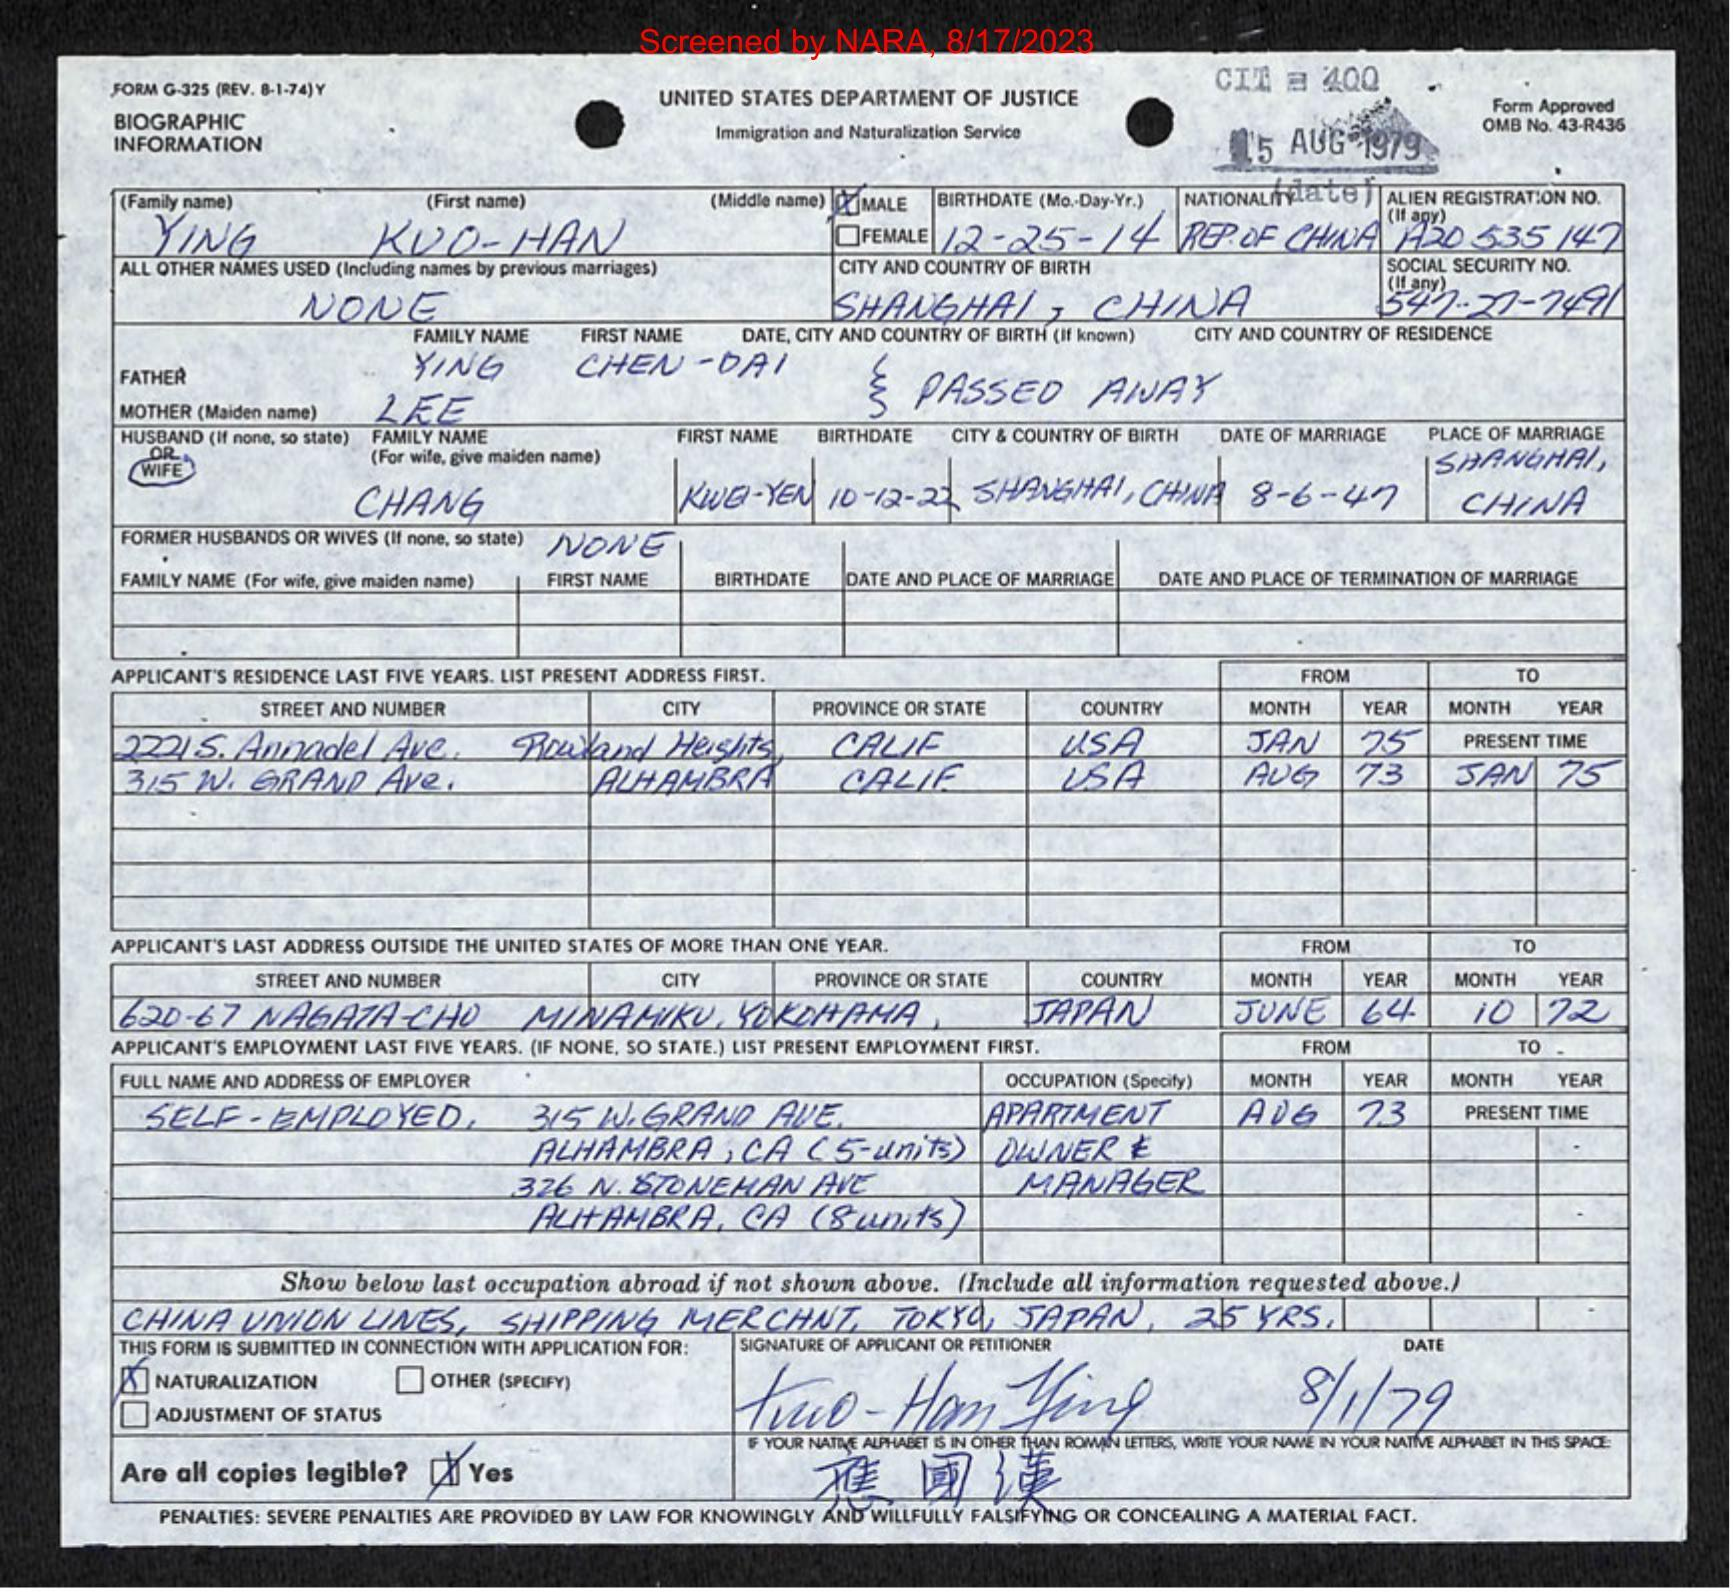 Screened by NARA, 8/17/2023
FORM G-325 (REV. 8-1-74) Y
BIOGRAPHIC
INFORMATION
UNITED STATES DEPARTMENT OF JUSTICE
Immigration and Naturalization Service
CIT 400
15 AUG 1979
(date)
Form Approved
OMB No. 43-R436
(Family name) (First name) (Middle name) X MALE BIRTHDATE (Mo.-Day-Yr.) NATIONALITY ALIEN REGISTRATION NO.
(If any)
YING KUO-HAN FEMALE 12-25-14 REP. OF CHINA A20 535 147
ALL OTHER NAMES USED (Including names by previous marriages) CITY AND COUNTRY OF BIRTH SOCIAL SECURITY NO.
(If any)
NONE SHANGHAI, CHINA 547-27-7491
FAMILY NAME FIRST NAME DATE, CITY AND COUNTRY OF BIRTH (If known) CITY AND COUNTRY OF RESIDENCE
FATHER YING CHEN-DAI
PASSED AWAY
MOTHER (Maiden name) LEE
HUSBAND (If none, so state) FAMILY NAME FIRST NAME BIRTHDATE CITY & COUNTRY OF BIRTH DATE OF MARRIAGE PLACE OF MARRIAGE
OR (For wife, give maiden name) SHANGHAI,
WIFE
CHANG KWEI-YEN 10-12-22 SHANGHAI, CHINA 8-6-47 CHINA
FORMER HUSBANDS OR WIVES (If none, so state) NONE
FAMILY NAME (For wife, give maiden name) FIRST NAME BIRTHDATE DATE AND PLACE OF MARRIAGE DATE AND PLACE OF TERMINATION OF MARRIAGE
APPLICANT'S RESIDENCE LAST FIVE YEARS. LIST PRESENT ADDRESS FIRST. FROM TO
STREET AND NUMBER CITY PROVINCE OR STATE COUNTRY MONTH YEAR MONTH YEAR
2221 S. Annadel Ave. Rowland Heights, CALIF USA JAN 75 PRESENT TIME
315 W. GRAND Ave. ALHAMBRA CALIF. USA AUG 73 JAN 75
APPLICANT'S LAST ADDRESS OUTSIDE THE UNITED STATES OF MORE THAN ONE YEAR. FROM TO
STREET AND NUMBER CITY PROVINCE OR STATE COUNTRY MONTH YEAR MONTH YEAR
620-67 NAGATA-CHO MINAMIKU, YOKOHAMA, JAPAN JUNE 64 10 72
APPLICANT'S EMPLOYMENT LAST FIVE YEARS. (IF NONE, SO STATE.) LIST PRESENT EMPLOYMENT FIRST. FROM TO
FULL NAME AND ADDRESS OF EMPLOYER OCCUPATION (Specify) MONTH YEAR MONTH YEAR
SELF-EMPLOYED, 315 W. GRAND AVE. APARTMENT AUG 73 PRESENT TIME
ALHAMBRA, CA (5-units) OWNER &
326 N. STONEMAN AVE MANAGER
ALHAMBRA, CA (8 units)
Show below last occupation abroad if not shown above. (Include all information requested above.)
CHINA UNION LINES, SHIPPING MERCHNT, TOKYO, JAPAN, 25 YRS.
THIS FORM IS SUBMITTED IN CONNECTION WITH APPLICATION FOR: SIGNATURE OF APPLICANT OR PETITIONER DATE
X NATURALIZATION OTHER (SPECIFY)
ADJUSTMENT OF STATUS
Kuo-Han Ying 8/1/79
IF YOUR NATIVE ALPHABET IS IN OTHER THAN ROMAN LETTERS, WRITE YOUR NAME IN YOUR NATIVE ALPHABET IN THIS SPACE:
Are all copies legible? X Yes
應國漢
PENALTIES: SEVERE PENALTIES ARE PROVIDED BY LAW FOR KNOWINGLY AND WILLFULLY FALSIFYING OR CONCEALING A MATERIAL FACT.